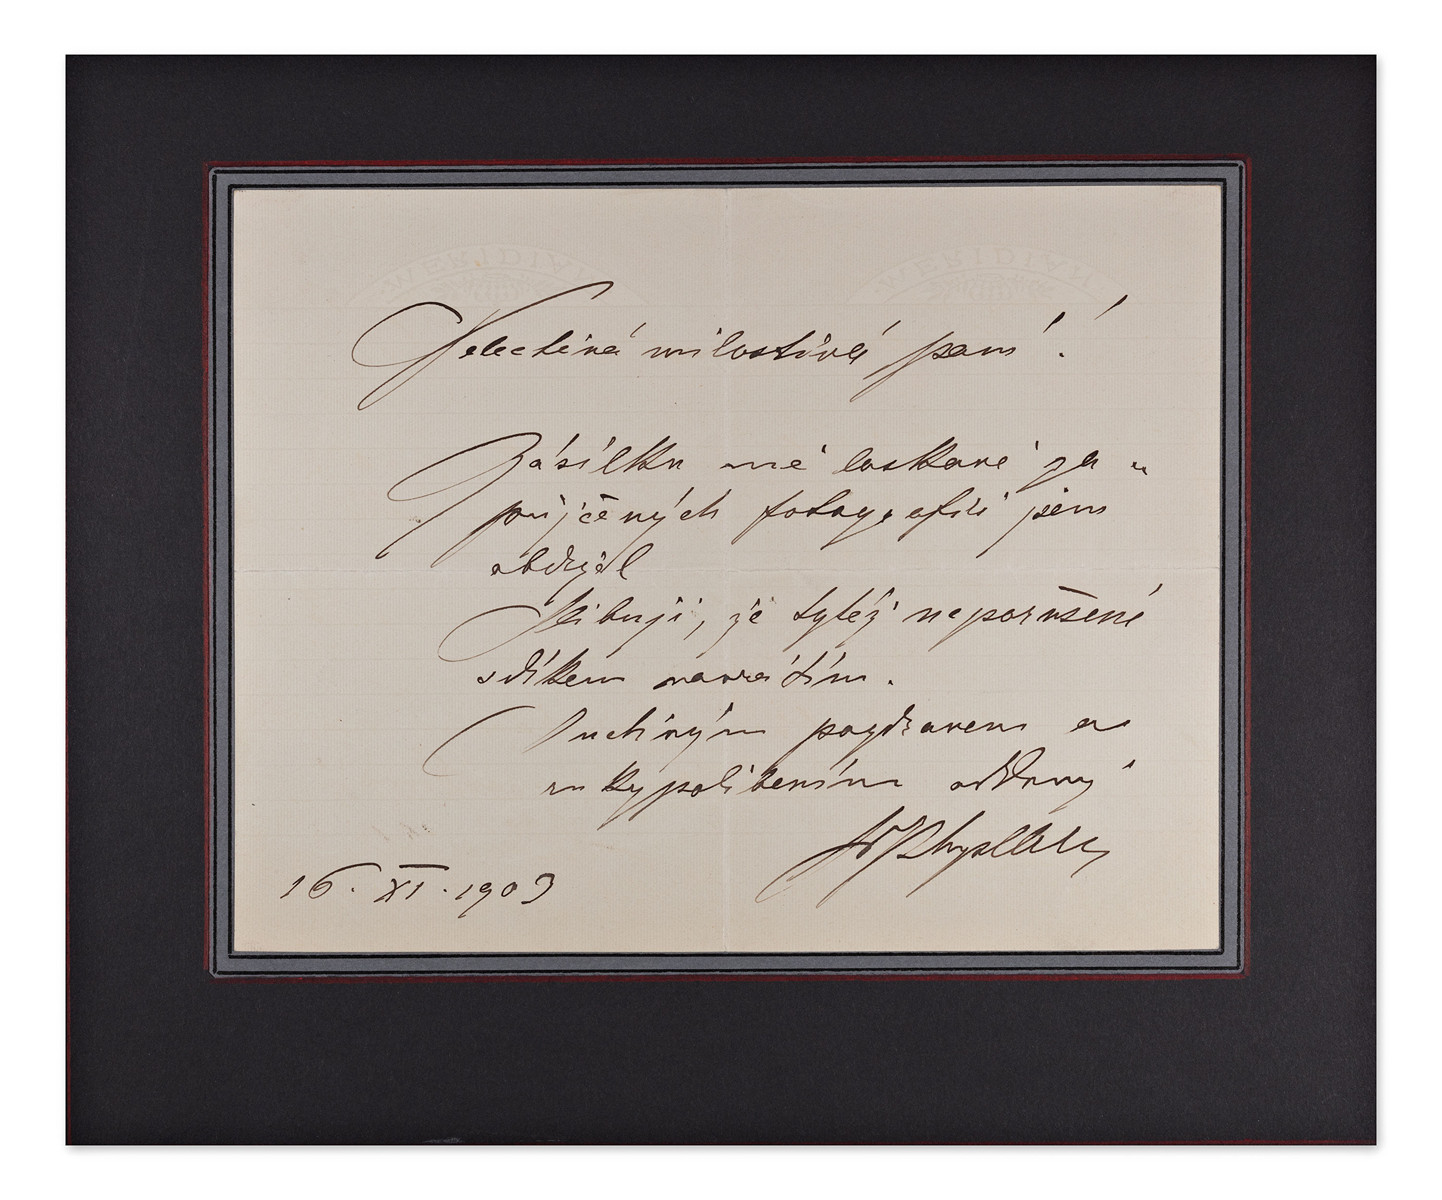 MERIDIAN MERIDIAN
Velectěná milostivá paní!
Zásilku mě laskavě za-
půjčených fotografií jsem
obdržel
Slibuji, že tytéž neporušené
s díkem navrátím.
S uctivým pozdravem a
rukypolíbením oddaný
16. XI. 1903